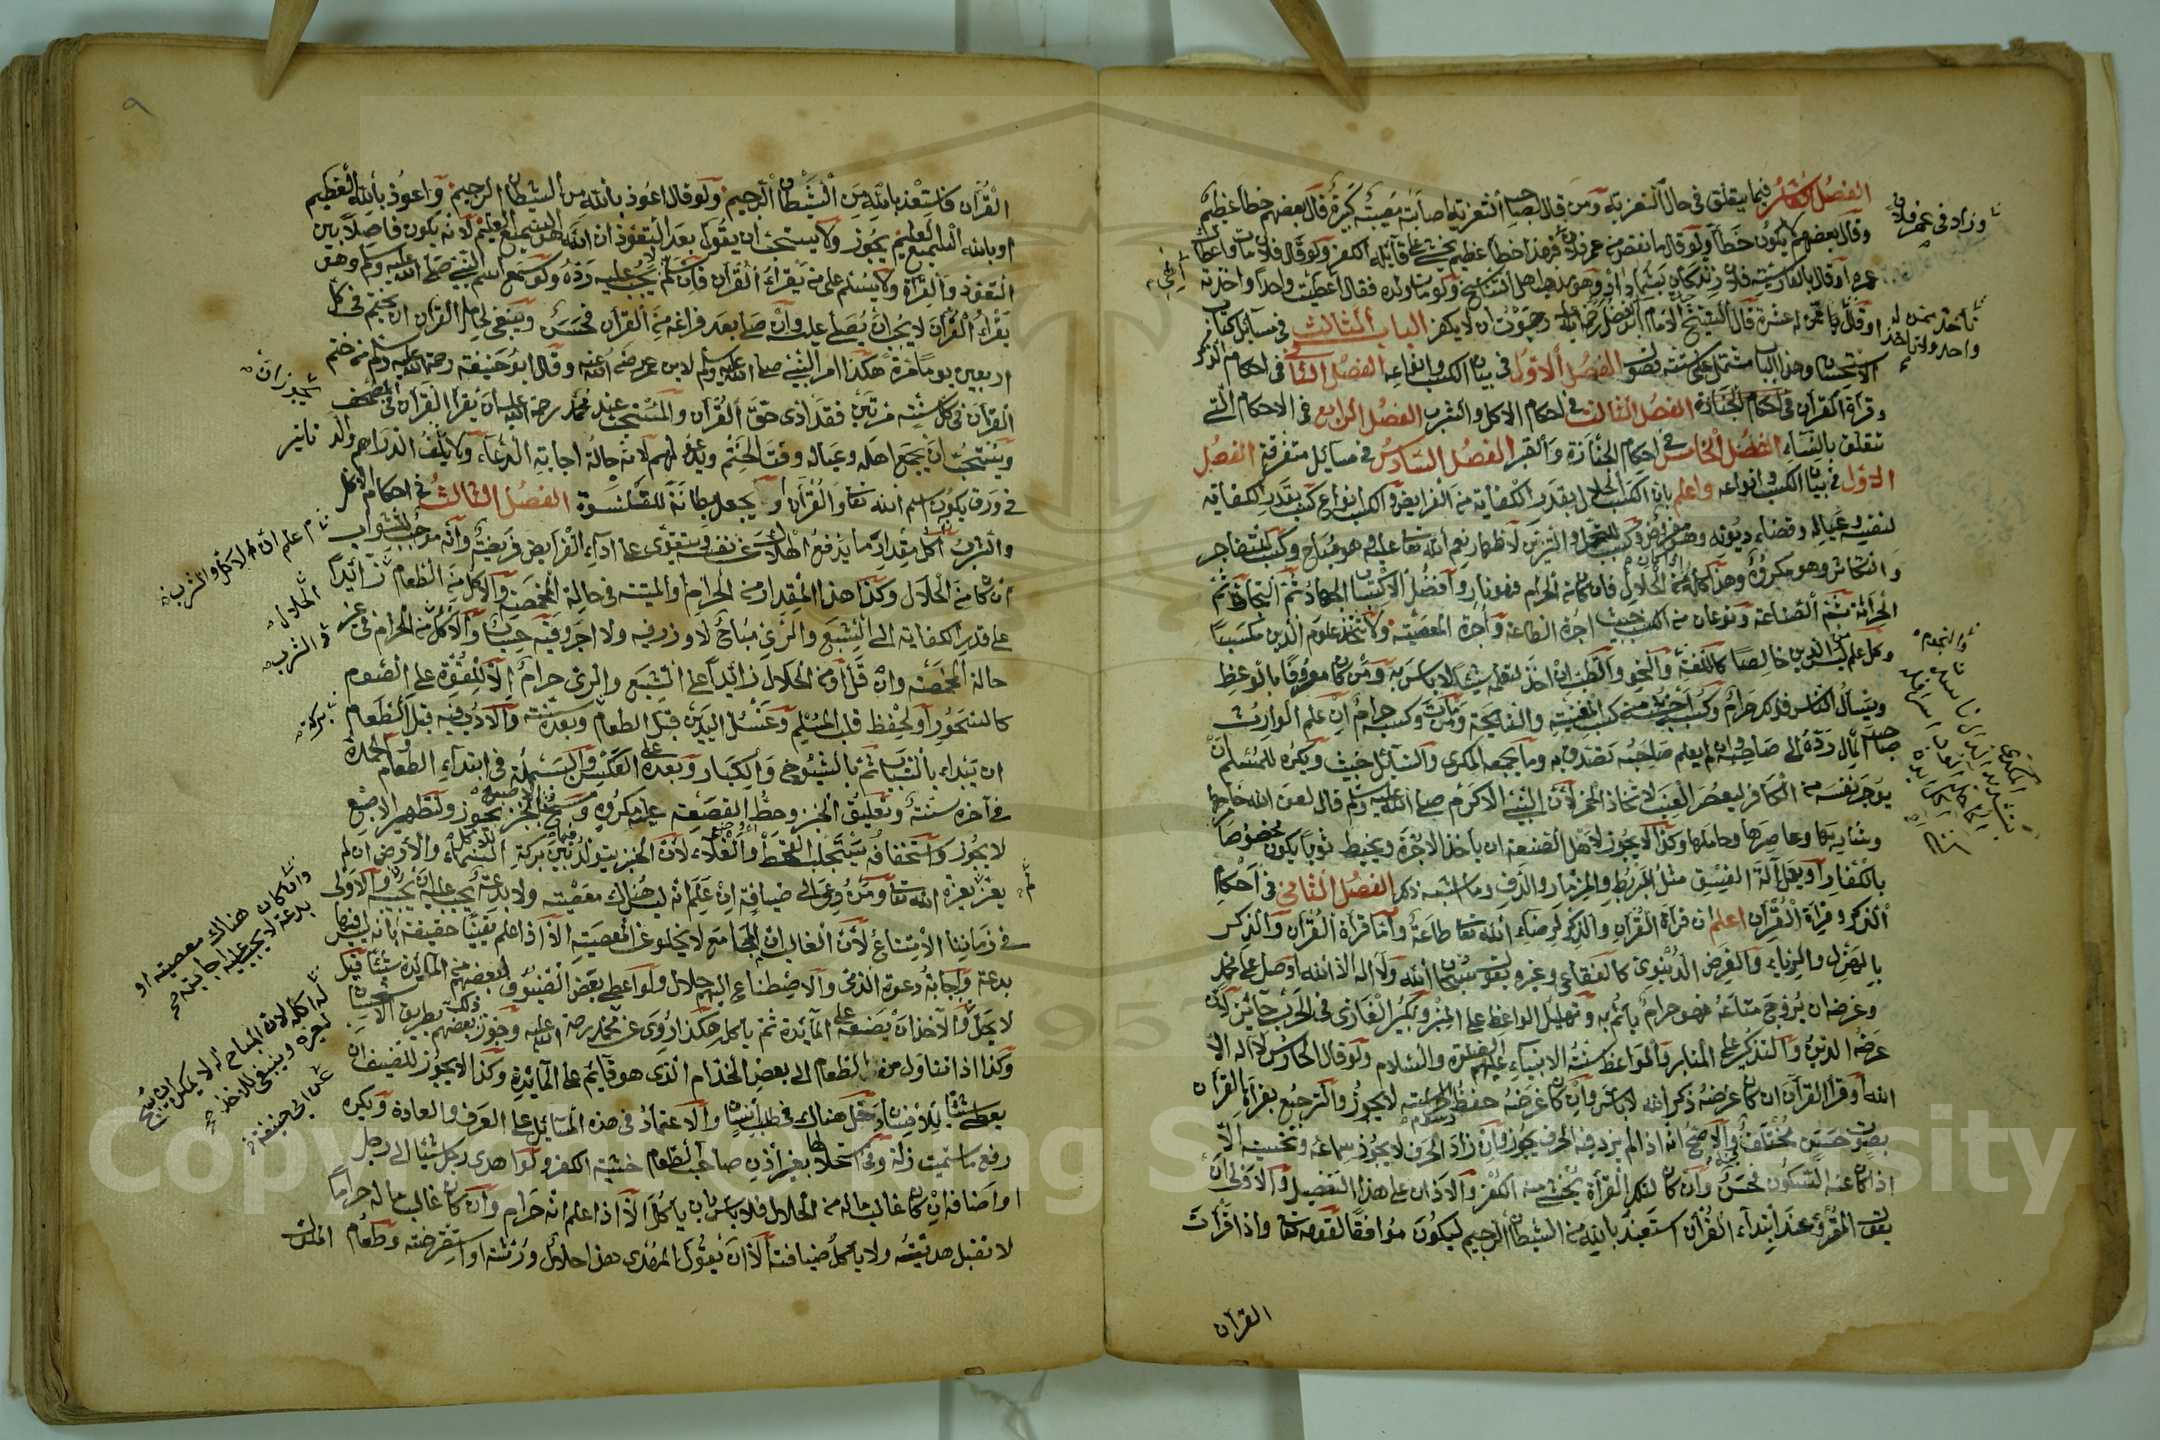 الفصل العاشر فيما يتعلق فى حال التعزية ومن قال لصاحب التعزية اصابت مصيبة كبيرة قال بعضهم خطأ عظيم
وقال بعضهم لا يكون خطأ ولو قال ما نقص من عمر فلان فهذا خطأ عظيم يخشى على قائله الكفر ولو قال فلان مات واعطاك
عمره او قال بالفارسية وهو مذهب اهل التناسخ ولو مات ولده فقال اعطيت واحدا واخذت
قال الشيخ الامام ان لا يكفر الباب الثالث فى مسائل كتاب
الاستحسان وهذا الباب يشتمل على ستة فصول الفصل الاول فى بيان الكسب وانواعه الفصل الثانى فى احكام الذكر
وقرأة القرآن فى احكام الجنازة الفصل الثالث فى احكام الاكل والشرب الفصل الرابع فى الاحكام التى
تتعلق بالنساء الفصل الخامس فى احكام الجنازة والقبر الفصل السادس فى مسائل متفرقة الفصل
الاول فى بيان الكسب وانواعه واعلم بان الكسب الحلال بقدر الكفاية من الفرايض والكسب انواع كسب بقدر الكفاية
لنفسه وعياله وقضاء ديونه وهو فريضة وكسب للتجمل والتزين لاظهار نعم الله تعا عليه وهو مباح وكسب للتفاخر
والتكاثر وهو مكروه وهذا كله من الحلال فان كان من الحرام فهو نار وافضل الاكتساب الجهاد ثم التجارة ثم
الحراثة ثم الصناعة ونوعان من الكسب خبيث اجرة الطاعة واجرة المعصية ولا تتخذ علوم الدين مكسبا
وكل علم ليس من الدين خالصا كاللغة والنحو والطب ان اخذ لتعلمه شيئا لا باس به ومن كان معروفا بالوعظ
ويسأل الناس فذلك حرام وكسب اخبث منه كسب المغنية والنايحة ومن مات وكسبه حرام ان علم الوارث
صاحب المال رده الى صاحبه وان لم يعلم صاحبه تصدق به وما يجمعه المكدى والسائل خبيث ويكره للمسلم ان
يؤجر نفسه من الكافر ليعصر العنب لاتخاذ الخمر لأن النبى الاكرم صلى الله عليه وسلم قال لعن الله خامرها
وشاربها وعاصرها وحاملها وكذا لا يجوز لاهل الصنعة ان ياخذ الاجرة ويخيط ثوبا يكون مخصوصا
بالكفار او يعمل آلة الفسق مثل البربط والمزمار والدف وما اشبه ذكر الفصل الثانى فى احكام
الذكر وقرأة القرآن اعلم ان قراءة القرآن والذكر لرضاء الله تعا طاعة واما قراءة القرآن والذكر
بالهزل والرياء والغرض الدنيوى كالفقاعى وغيره يقول سبحان الله ولا اله الا الله او صل على محمد
وغرضه ان يروج متاعه فهو حرام يأثم به وتهليل الواعظ على المنبر وتكبير الغازى فى الحرب جائز لان
غرضه الدين والتذكير على المنابر والمواعظ سنة الانبياء عليهم الصلوة والسلام ولو قال الحارس لا اله الا
الله او قرأ القرآن ان كان غرضه ذكر الله لا باس وان كان غرضه حفظ الحراسة لا يجوز والترجيع بقراءة القرآن
بصوت حسن مختلف فيه والاصح انه اذا لم يزد فيه الحرف يجوز وان زاد الحرف لا يجوز سماعه وتحسينه الا
اذا كان عند السكون فحسن وان كان لتكبر القرأة يخشى منه الكفر والاذان على هذا التفصيل والاولى ان
يقول المقرئ عند ابتداء القرآن استعيذ بالله من الشيطان الرجيم ليكون موافقا لقوله تعا واذا قرأت
القرآن
وزاد فى عمر فلان
والنجوم
٩
القرآن فاستعذ بالله من الشيطان الرجيم ولو قال اعوذ بالله من الشيطان الرجيم واعوذ بالله العظيم
او بالله السميع العليم يجوز ولا يستحب ان يقول بعد التعوذ ان الله هو السميع العليم لأنه يكون فاصلا بين
التعوذ والقرأة ولا يسلم على من يقراء القرآن فان سلم لا يجب عليه رده ولو سمع اسم النبى صلى الله عليه وسلم وهو
يقراء القرآن لا يجب ان يصلى عليه وان صلى بعد فراغه من القرآن فحسن وينبغى لحامل القران ان يختم فى كل
اربعين يوما مرة هكذا امر النبى صلى الله عليه وسلم لابن عمر رضى الله عنه وقال ابو حنيفة رحمة الله عليه من ختم
القرآن فى كل سنة مرتين فقد ادى حق القرآن والمستحب عند محمد رحمة الله عليه ان يقرأ القرآن فى المصحف
ويستحب ان يجمع اهله وعياله وقت الختم ويدعو لهم لانه حالة اجابة الدعاء ولا يلف الدراهم
فى ورق يكون اسم الله تعا والقرآن او يجعل بطانة للقلنسوة الفصل الثالث فى احكام الاكل
والشرب اكل مقدار ما يدفع الهلاك عن نفسه ويتقوى على اداء الفرايض فريضة وانه موجب للثواب
ان كان من الحلال وكذا هذا المقدار من الحرام والميتة فى حالة المخمصة والاكل من الطعام زائدا
على قدر الكفاية الى الشبع والرى مباح لا وزر فيه ولا اجر وفيه حساب والاكل من الحرام فى غير
حالة المخمصة وان قل او من الحلال زائدا على الشبع والرى حرام الا للقوة على الصوم
كالسحور او لحفظ قلب المسلم وغسل اليدين قبل الطعام وبعده سنة والادب فيه قبل الطعام
ان يبداء بالشباب ثم بالشيوخ والكبار وبعده على العكس والبسملة فى ابتداء الطعام والحمد
فى آخره سنة وتعليق الخبز وحط القصعة عليه مكروه ومسح الخبز يجوز ولتطهير الاصبع
لا يجوز واستخفافه يستجلب القحط والغلاء لأن الخبز يتولد من بين بركة السماء والارض ان لم
يعز بعزة الله تعا ومن دعى الى ضيافة ان علم انه ليس هناك معصية ولا بدعة يجب عليه ان يجيبه والاولى
فى زماننا الامتناع لأن الغالب ان المجامع لا يخلو عن المعصية الا اذا علم يقينا حقيقة بانه ليس فيها
بدعة واجابة دعوة الذمى والاصطناع اليهم حلال ولو اعطى بعض الضيوف لبعضهم من المائدة شيئا قيل
لا يحل والآخذ ان يضعه على المائدة ثم ياكل هكذا روى عن محمد رحمة الله عليه وجوز بعضهم ذلك بطريق الاستحسان
وكذا اذا تناول من الطعام الى بعض الخدام الذى هو قائم على المائدة وكذا لا يجوز للضيف ان
يعطى شيئا لمن دخل هناك فى طلب انسان والاعتماد فى هذه المسائل على العرف والعادة ويكره
رفع ما سميت زلة ومن استحلها بغير اذن صاحب الطعام خشية الكفر ولو اهدى رجل شيئا الى رجل
او اضافه ان كان غالب ماله من الحلال فلا باس بان ياكل الا اذا علم انه حرام وان كان غالب ماله حراما
لا تقبل هديته ولا ياكل ضيافته الا ان يقول المهدى هذا حلال ورثته او استقرضته وطعام الملوك
اعلم ان الاكل والشرب
الحلال
والشرب
بركة
وان كان هناك معصية او
بدعة لا يجب عليه اجابته
عن ابى حنيفة
Copyright © King Saud University